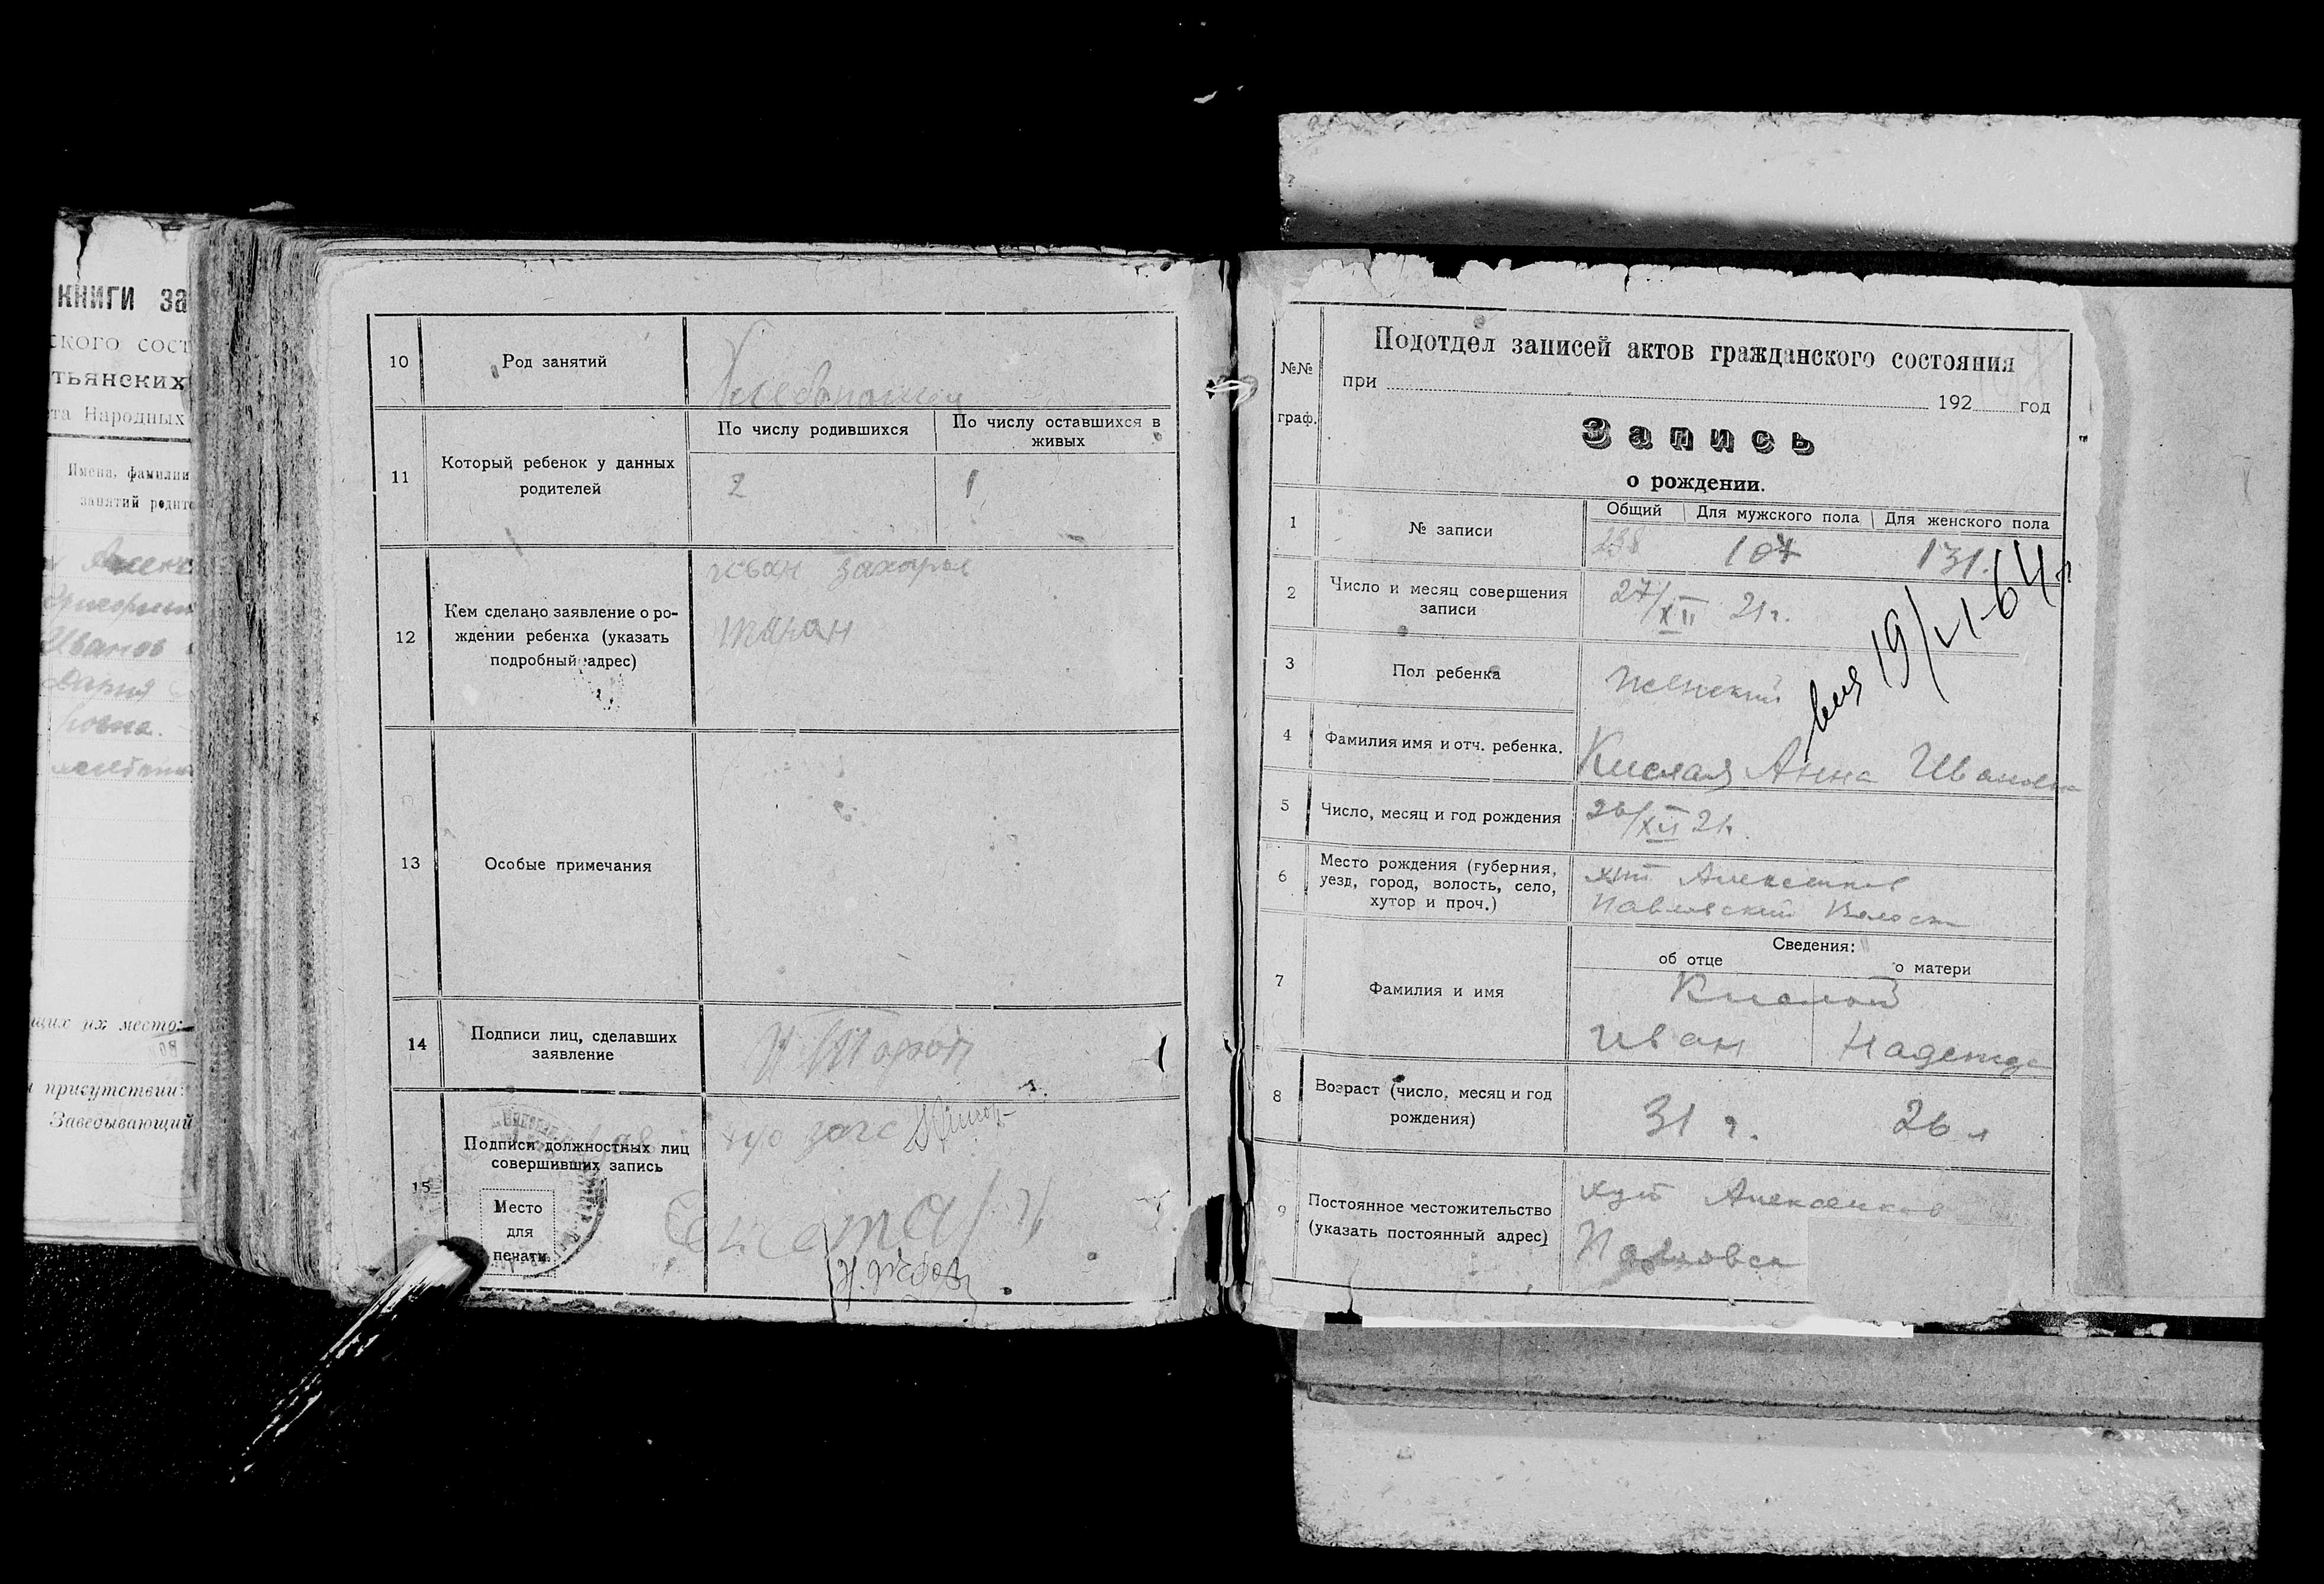 книги за
ского сост
тьянских
та Народных
Имена, фамилии
занятий родите
Иванов
Дария
щих их место:
и присутствии:
Заведывающий
10 Род занятий Хлебопашец
11 Который ребенок у данных родителей
По числу родившихся По числу оставшихся в живых
2 1
12 Кем сделано заявление о рождении ребенка (указать подробный адрес)
Иван Захаров
Таран
13 Особые примечания
14 Подписи лиц, сделавших заявление
15 Подписи должностных лиц совершивших запись
загс
Место
для
печати
№№ граф.
Подотдел записей актов гражданского состояния
при 192 год
Запись
о рождении.
1 № записи
Общий Для мужского пола Для женского пола
238 107 131.
2 Число и месяц совершения записи
27/XII 21г.
19/VI-64г
3 Пол ребенка Женский
4 Фамилия имя и отч. ребенка. Кислая Анна Ивановна
5 Число, месяц и год рождения 26/XII 21г.
6 Место рождения (губерния, уезд, город, волость, село, хутор и проч.)
хут Алексенков
Павловский Волости
7 Фамилия и имя
Сведения:
об отце о матери
Кислой
Иван Надежда
8 Возраст (число, месяц и год рождения)
31 г. 26 л
9 Постоянное местожительство (указать постоянный адрес)
хут Алексенков
Павловск